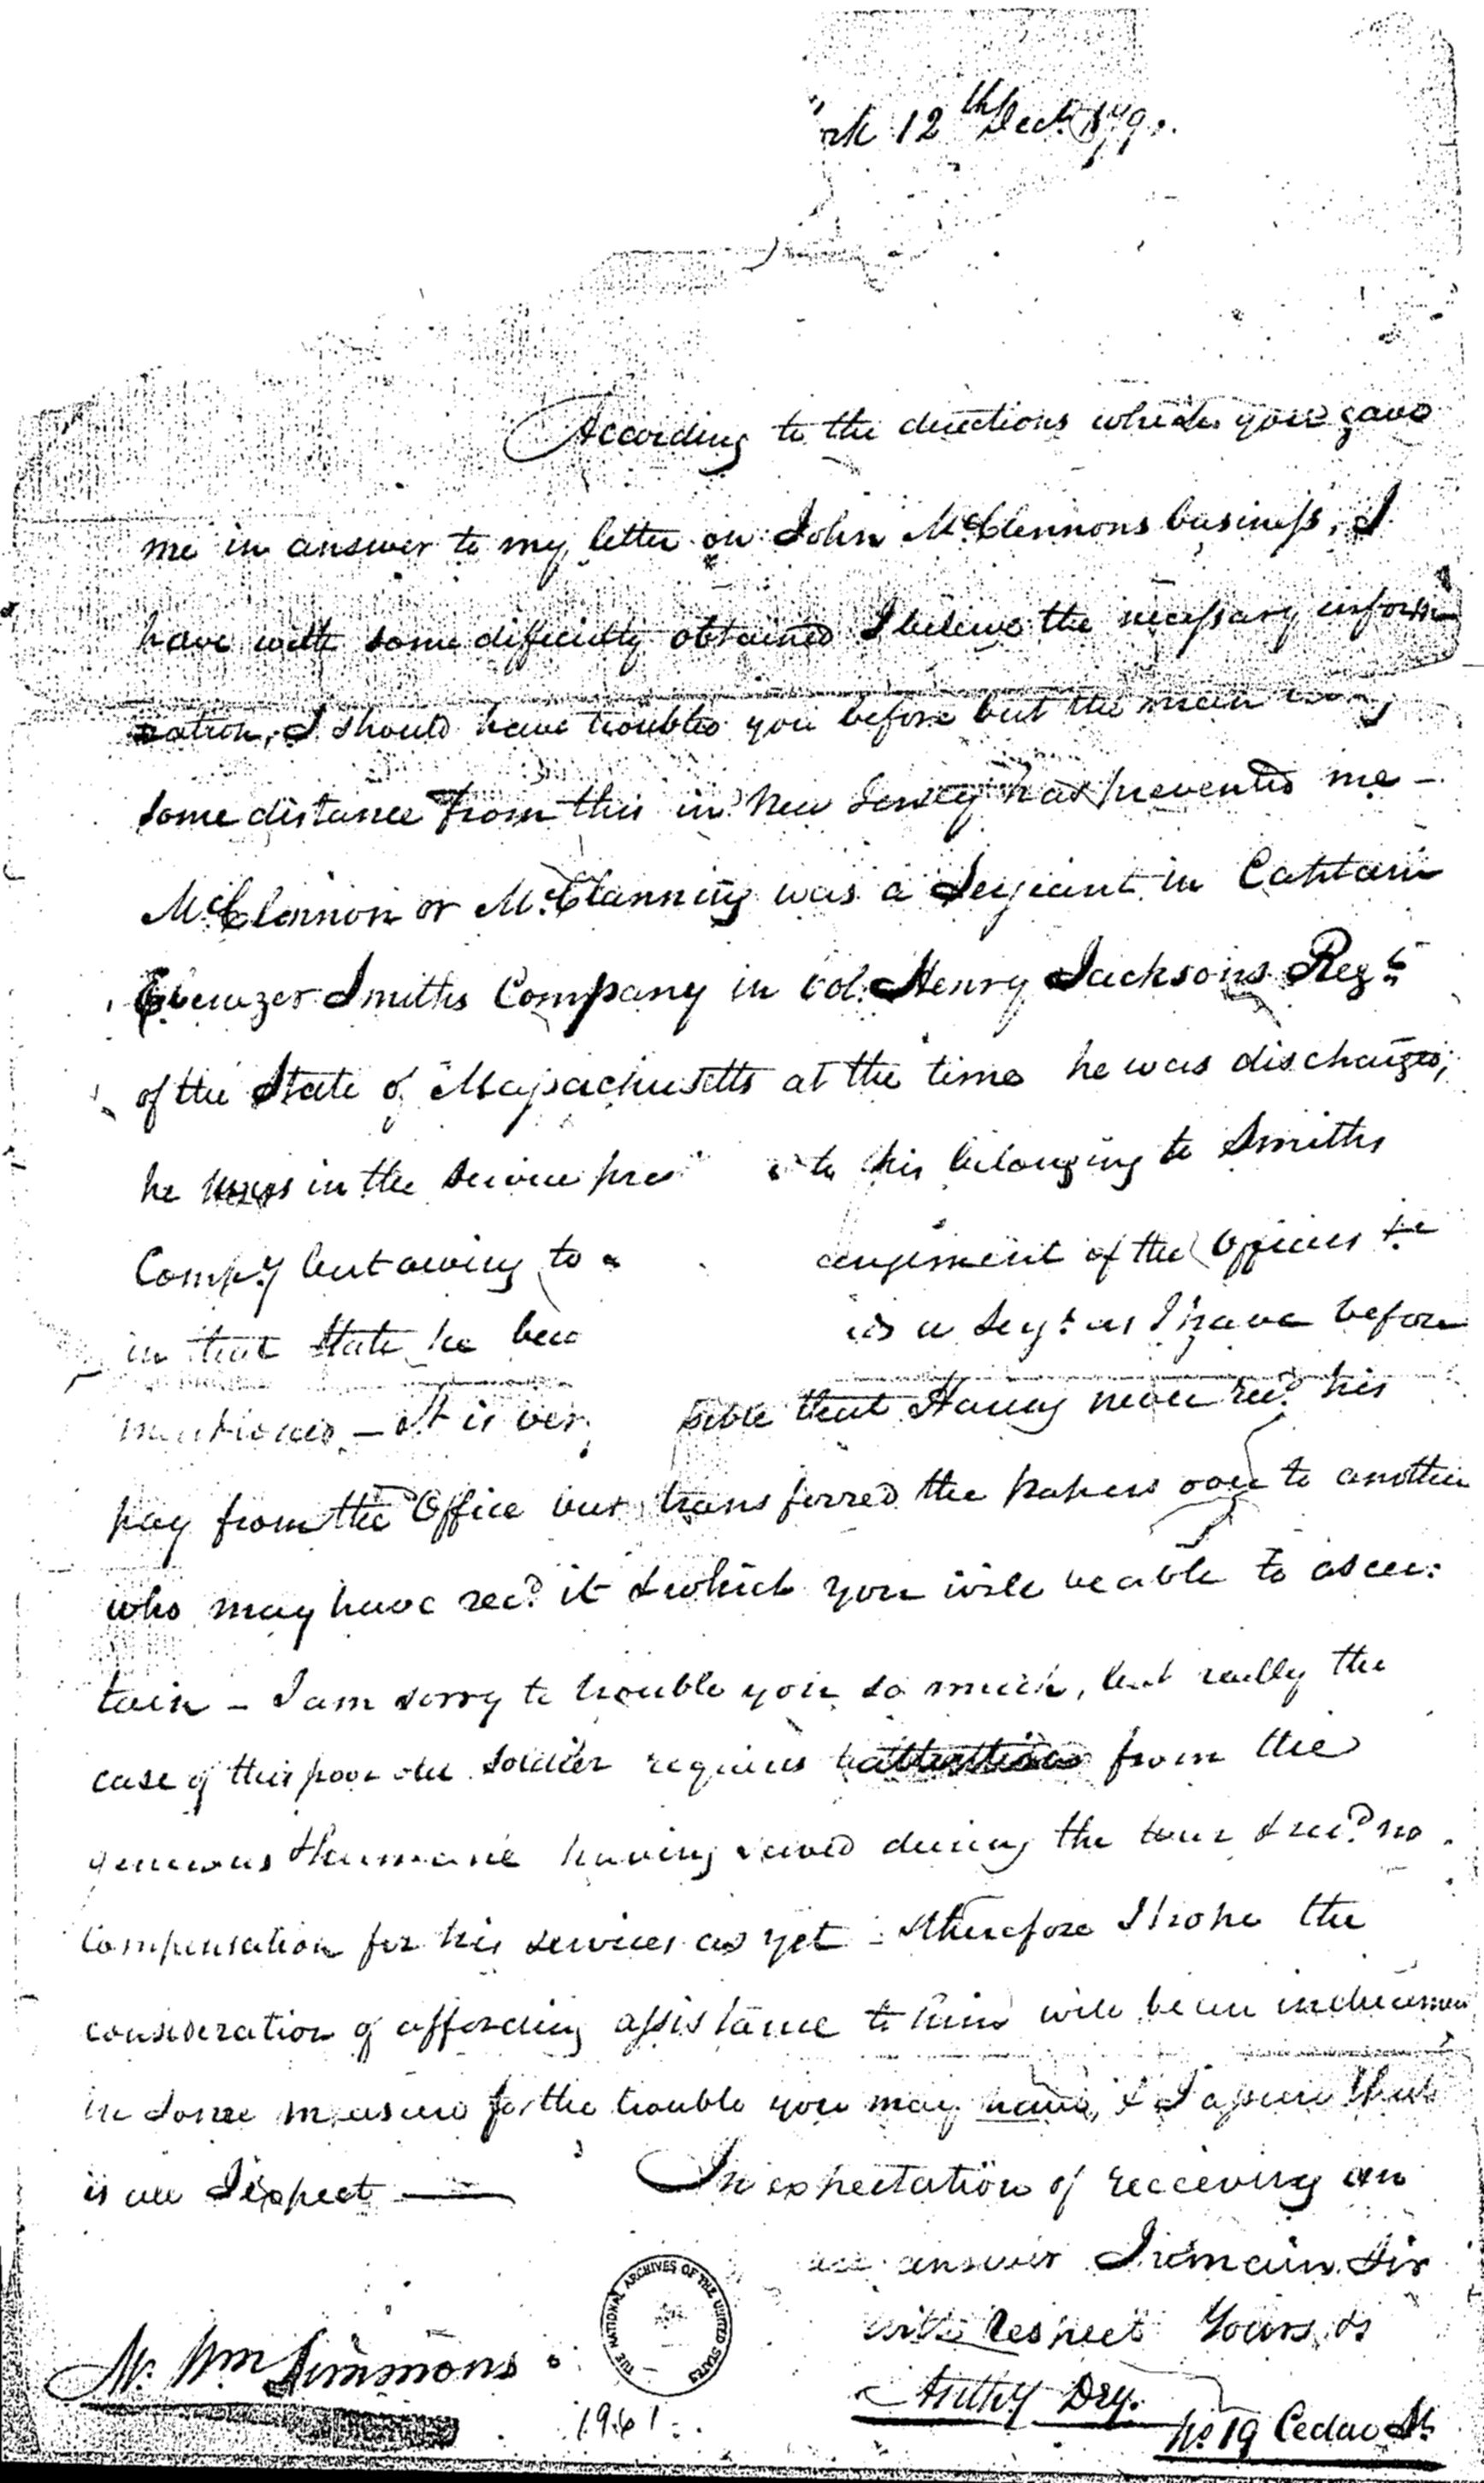 12th Decr. 179
According to the directions which you gave
me in answer to my letter on John McClennons business, I
have with some difficulty obtained I believe the necessary infor
mation, I should have troubled you before but the man
some distance from this in New Jersey has prevented me –
McClennon or McClanning was a Serjeant in Captain
Ebenezer Smiths Company in Col. Henry Jacksons Regt.
of the State of Massachusetts at the time he was discharged,
he was in the service to his belonging to Smiths
Compy but owing to angement of the Officers &c
in that State he as a Sergt. as I have before
mentioned – It is that Haney never recd. his
pay from the Office but transferred the papers over to another
who may have recd. it & which you will be able to ascer:
tain – I am sorry to trouble you so much, but really the
case of this poor old soldier requires attention from the
generous & humane having served during the war & recd. no
compensation for his services as yet – therefore I hope the
consideration of affording assistance to him will be an inducement
in some measure for the trouble you may have, & I assure that
is all I expect —— In expectation of receiving an
answer I remain Sir
with Respect Yours &
Mr. Wm Simmons
Anthy Dey.
No 19 Cedar St.
THE NATIONAL ARCHIVES OF THE UNITED STATES